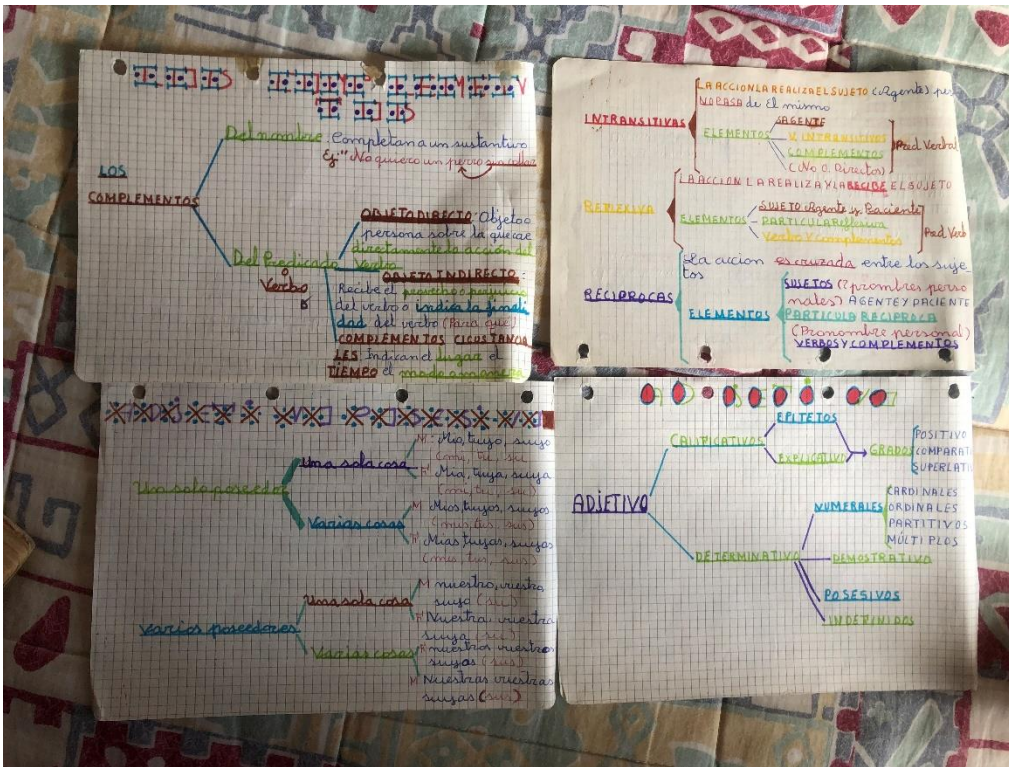 LOS
COMPLEMENTOS
Del nombre: Completan a un sustantivo
Ej: "No quiero un perro sin collar
Del Predicado
o
Verbo
OBJETO DIRECTO: Objeto o
persona sobre la que cae
directamente la acción del
Verbo
OBJETO INDIRECTO:
Recibe el provecho o perjuicio
del verbo o indica la finali
dad del verbo (Para qué)
COMPLEMENTOS CICUSTANCIA
LES: Indican el lugar el
TIEMPO el modo o manera
INTRANSITIVAS
LA ACCION LA REALIZA EL SUJETO (Agente) pero
NO PASA de El mismo
ELEMENTOS
S AGENTE
V. INTRANSITIVOS
COMPLEMENTOS
(No C. Directos)
Pred. Verbal
REFLEXIVA
LA ACCION LA REALIZA Y LA RECIBE EL SUJETO
ELEMENTOS
SUJETO Agente y Paciente
PARTICULA Reflexiva
Verbo y Complementos
Pred. Verb
RECIPROCAS
La accion es cruzada entre los suje
tos
ELEMENTOS
SUJETOS (2 prombres perso
nales) AGENTE Y PACIENTE
PARTICULA RECIPROCA
(Pronombre personal)
VERBOS Y COMPLEMENTOS
ADJETIVO POSESIVO
Un solo poseedor
Una sola cosa
M: Mío, tuyo, suyo
(mi, tu, su)
F: Mía, tuya, suya
(mi, tu, su)
Varias cosas
M: Mios, tuyos, suyos
(mis, tus, sus)
F: Mias tuyas, suyas
(mis, tus, sus)
Varios poseedores
Una sola cosa
M nuestro, vuestro
suyo (su)
F Nuestra, vuestra
suya (su)
Varias cosas
nuestros vuestros
suyos (sus)
Nuestras vuestras
suyas (sus)
ADJETIVO
ADJETIVO
CALIFICATIVOS
EPITETOS
EXPLICATIVO
GRADOS
POSITIVO
COMPARATI
SUPERLATI
DETERMINATIVO
NUMERALES
CARDINALES
ORDINALES
PARTITIVOS
MÚLTIPLOS
DEMOSTRATIVO
POSESIVOS
INDEFINIDOS